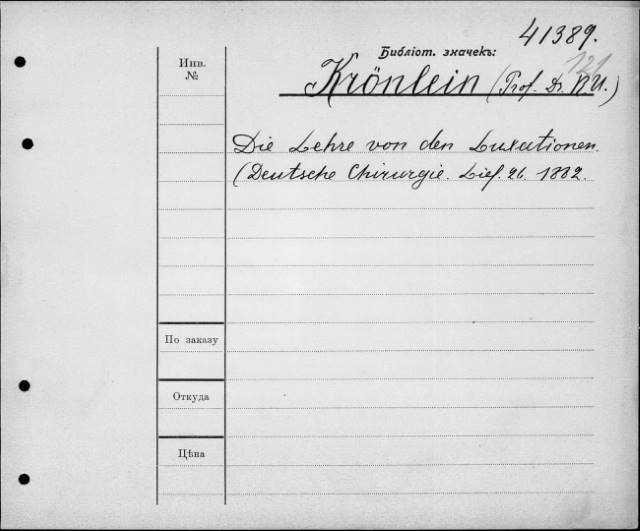 41389.
Библіот. значекъ:
121
Инв.
№
Krönlein (Prof. Dr. R.U.)
Die Lehre von den Luxationen.
(Deutsche Chirurgie. Lief. 26. 1882.
По заказу
Откуда
Цѣна